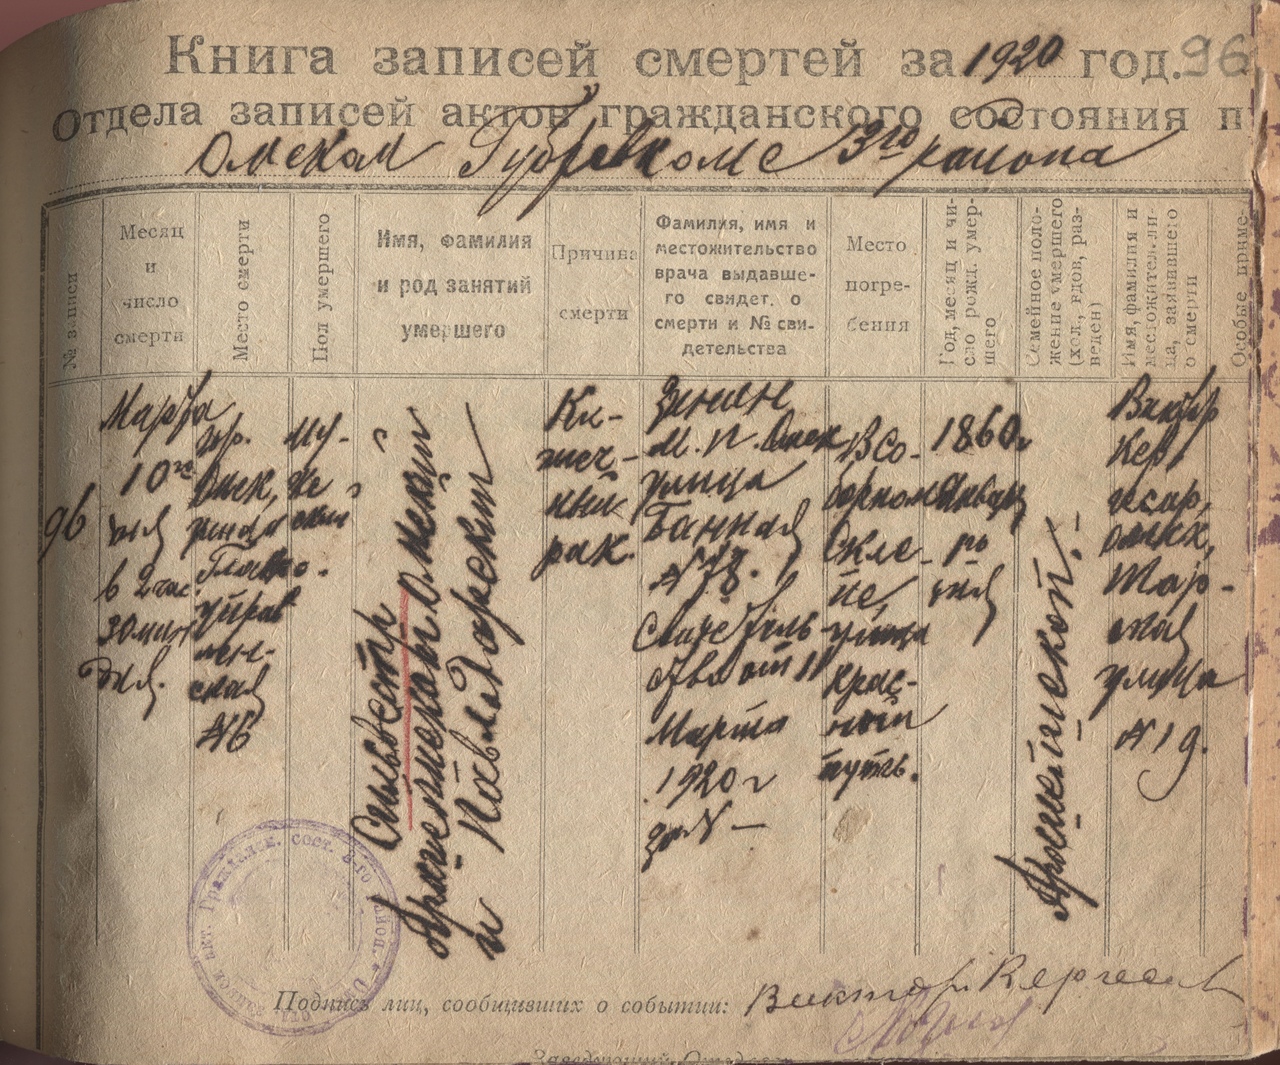 Книга записей смертей за 1920 год. 96
Отдела записей актов гражданского состояния п
Омском Губревкоме 3го района
№ записи
Месяц
и
число
смерти
Место смерти
Пол умершего
Имя, фамилия
и род занятий
умершего
Причина
смерти
Фамилия, имя и
местожительство
врача выдавше-
го свидет. о
смерти и № сви-
детельства
Место
погре-
бения
Год, месяц и чи-
сло рожд. умер-
шего
Семейное поло-
жение умершего
(хол., вдов, раз-
веден)
Имя, фамилия и
местожител. ли-
ца, заявившего
о смерти
Особые приме-
96
Марта
10го
дня
в 2 час.
30 мин
дня.
гр.
Омск,
управ
ская
№ 6
Му-
же
ский
Сильвестр
Архиепископ Омский
и Павлодарский
Ки-
шеч-
ный
рак.
Зинин
М. П. Омск
улица
Банная
№ 78.
Свидетель-
ство от 11
Марта
1920 г
за № —
В со-
борном
скле-
пе,
улица
Крас-
ный
путь.
1860 г
Январ
дня
Архиепископ.
Виктор
Омск,
Тар-
ская
улица
№ 19.
Подпись лиц, сообщивших о событии: Виктор
Заведующий Отделом